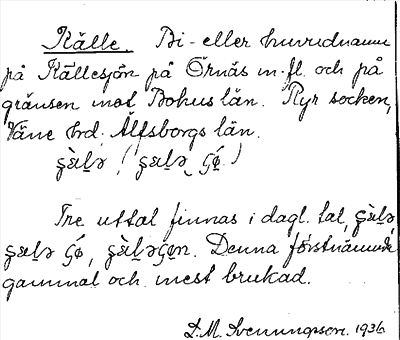 Källe. Bi- eller huvudnamn
på Källesjön på Örnäs m.fl. och på
gränsen mot Bohus län. Ryr socken,
Väne hrd. Älfsborgs län.
Tre uttal finnas i dagl. tal,
Denna förstnämnda
gammal och mest brukad.
L.M. Svenungsson. 1936